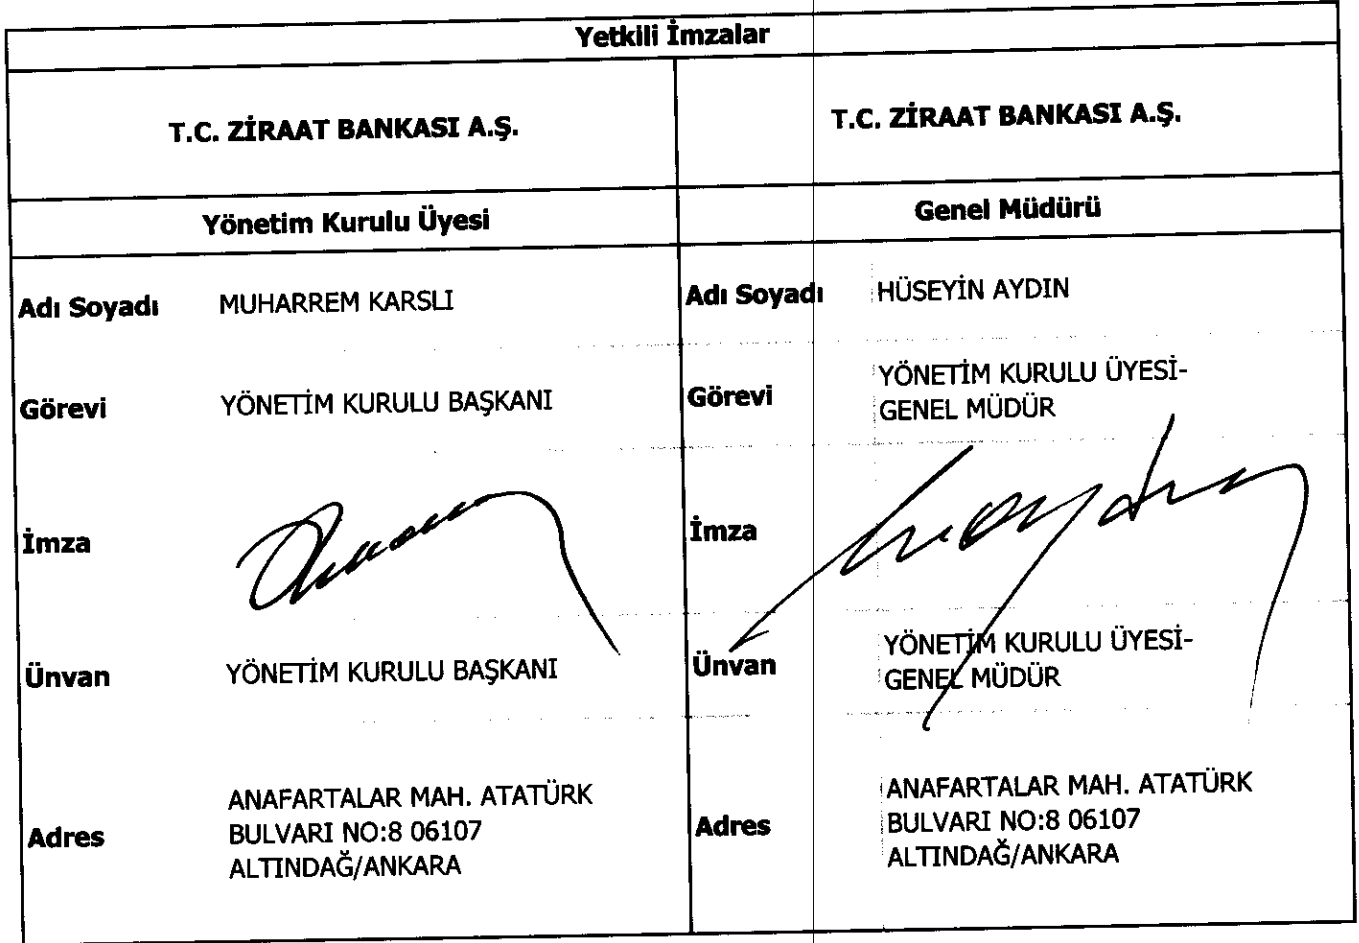 Yetkili İmzalar
T.C. ZİRAAT BANKASI A.Ş.
T.C. ZİRAAT BANKASI A.Ş.
Yönetim Kurulu Üyesi
Genel Müdürü
Adı Soyadı MUHARREM KARSLI
Adı Soyadı HÜSEYİN AYDIN
Görevi YÖNETİM KURULU BAŞKANI
Görevi YÖNETİM KURULU ÜYESİ-
GENEL MÜDÜR
İmza
İmza
Ünvan YÖNETİM KURULU BAŞKANI
Ünvan YÖNETİM KURULU ÜYESİ-
GENEL MÜDÜR
Adres ANAFARTALAR MAH. ATATÜRK
BULVARI NO:8 06107
ALTINDAĞ/ANKARA
Adres ANAFARTALAR MAH. ATATÜRK
BULVARI NO:8 06107
ALTINDAĞ/ANKARA